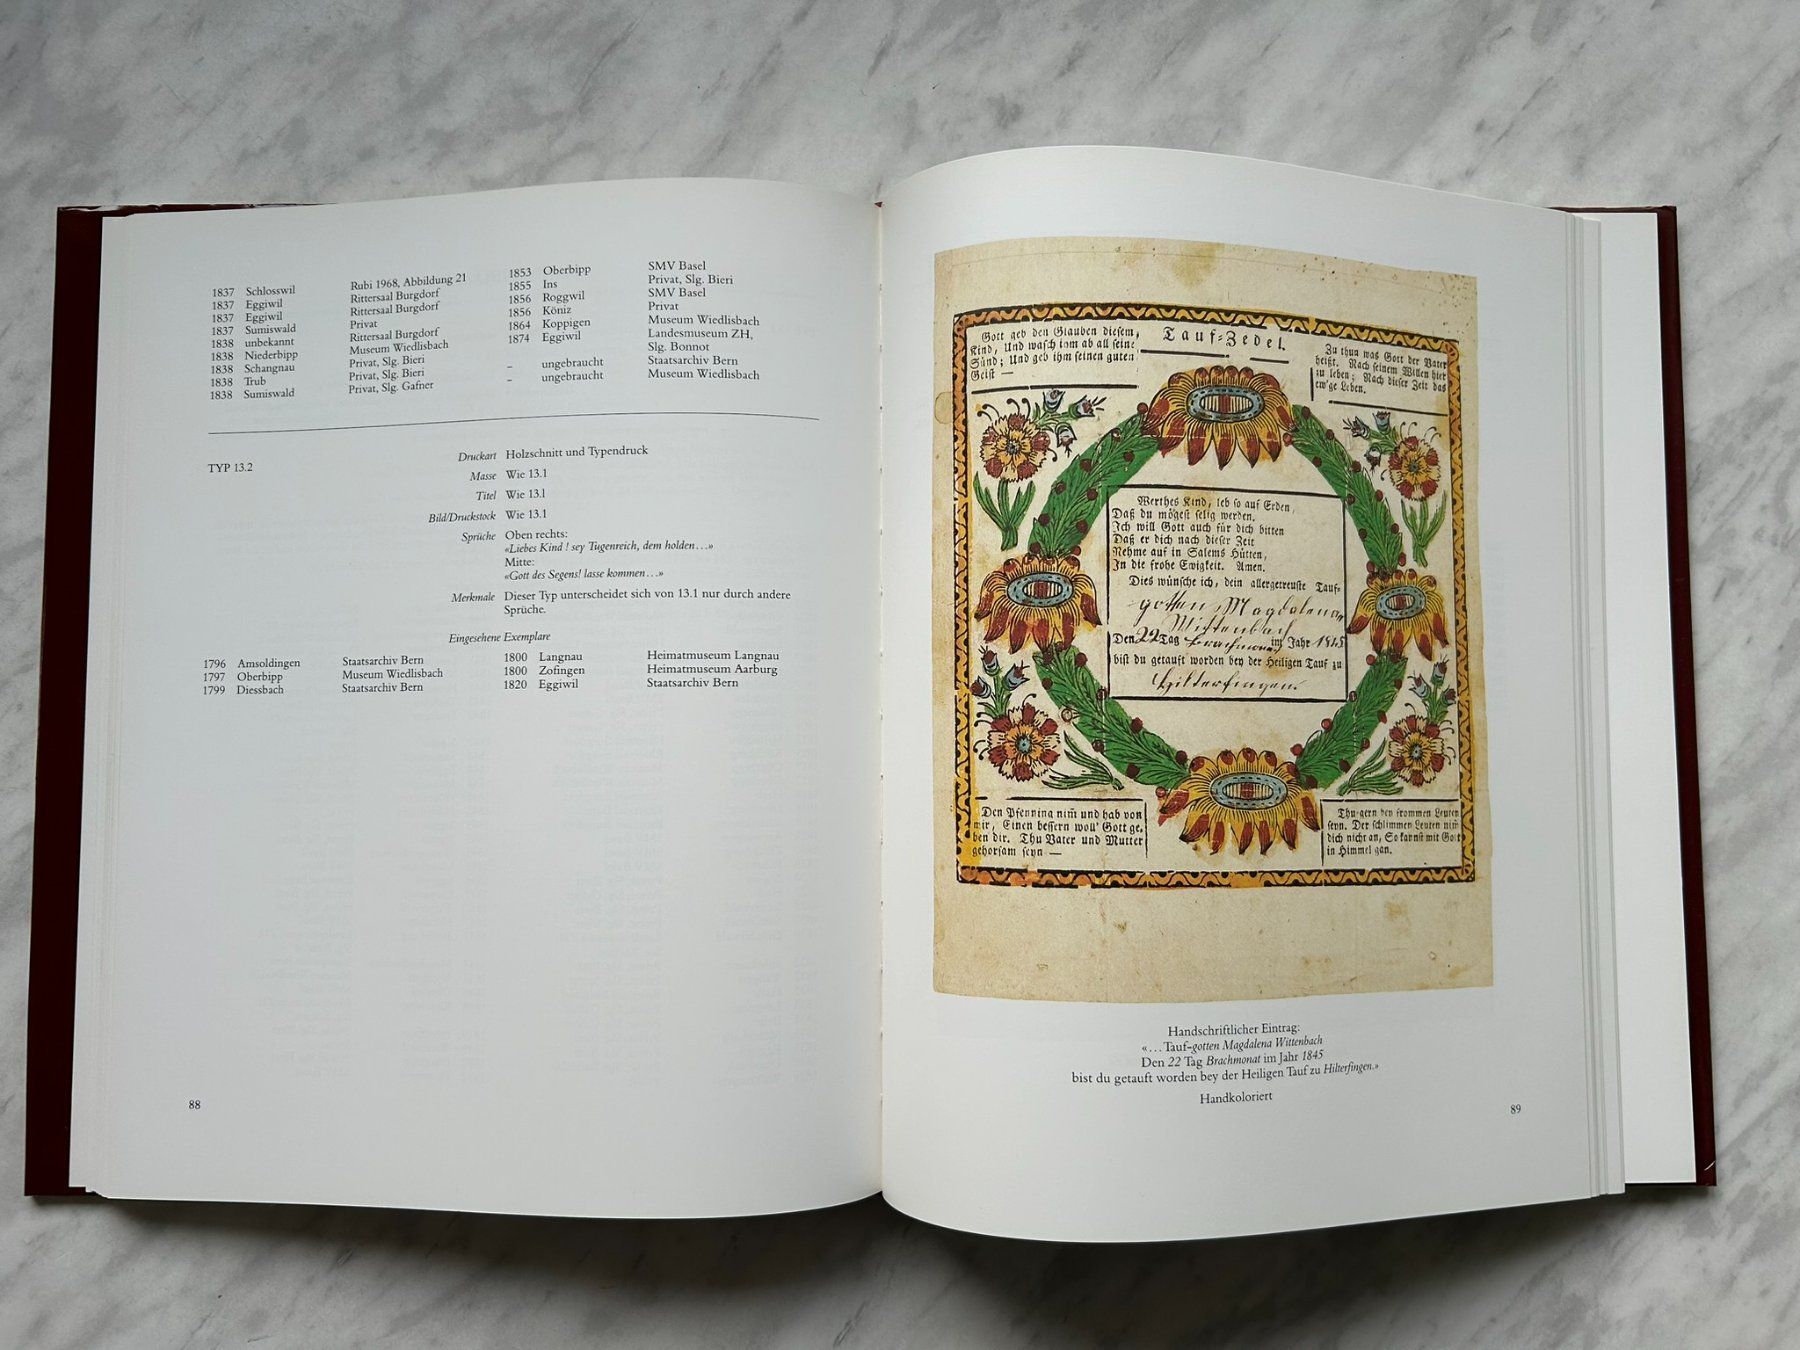 1837 Schlosswil Rubi 1968, Abbildung 21
1837 Eggiwil Rittersaal Burgdorf
1837 Eggiwil Rittersaal Burgdorf
1837 Sumiswald Privat
1838 unbekannt Rittersaal Burgdorf
1838 Niederbipp Museum Wiedlisbach
1838 Schangnau Privat, Slg. Bieri
1838 Trub Privat, Slg. Bieri
1838 Sumiswald Privat, Slg. Gafner
1853 Oberbipp SMV Basel
1855 Ins Privat, Slg. Bieri
1856 Roggwil SMV Basel
1856 Köniz Privat
1864 Koppigen Museum Wiedlisbach
1874 Eggiwil Landesmuseum ZH,
Slg. Bonnot
– ungebraucht Staatsarchiv Bern
– ungebraucht Museum Wiedlisbach
TYP 13.2
Druckart Holzschnitt und Typendruck
Masse Wie 13.1
Titel Wie 13.1
Bild/Druckstock Wie 13.1
Sprüche Oben rechts:
«Liebes Kind ! sey Tugenreich, dem holden…»
Mitte:
«Gott des Segens! lasse kommen…»
Merkmale Dieser Typ unterscheidet sich von 13.1 nur durch andere
Sprüche.
Eingesehene Exemplare
1796 Amsoldingen Staatsarchiv Bern
1797 Oberbipp Museum Wiedlisbach
1799 Diessbach Staatsarchiv Bern
1800 Langnau Heimatmuseum Langnau
1800 Zofingen Heimatmuseum Aarburg
1820 Eggiwil Staatsarchiv Bern
88
Gott geb den Glauben diesem
Kind, Und wasch ihm ab all seine
Sünd; Und geb ihm seinen guten
Geist —
Tauf=Zedel.
Zu thun was Gott der Vater
heißt. Nach seinem Willen hier
zu leben; Nach dieser Zeit das
ew'ge Leben.
Werthes Kind, leb so auf Erden,
Daß du mögest selig werden.
Ich will Gott auch für dich bitten
Daß er dich nach dieser Zeit
Nehme auf in Salems Hütten,
In die frohe Ewigkeit. Amen.
Dies wünsche ich, dein allergetreuste Tauf-
gotten, Magdalena
Wittenbach
Den 22 Tag Brachmonat im Jahr 1845
bist du getauft worden bey der Heiligen Tauf zu
Hilterfingen.
Den Pfenning nim̃ und hab von
mir, Einen bessern woll' Gott ge-
ben dir. Thu Vater und Mutter
gehorsam seyn —
Thu gern den frommen Leuten
seyn. Der schlimmen Leuten nim̃
dich nicht an, So kannst mit Gott
in Himmel gan.
Handschriftlicher Eintrag:
«…Tauf-gotten Magdalena Wittenbach
Den 22 Tag Brachmonat im Jahr 1845
bist du getauft worden bey der Heiligen Tauf zu Hilterfingen.»
Handkoloriert
89